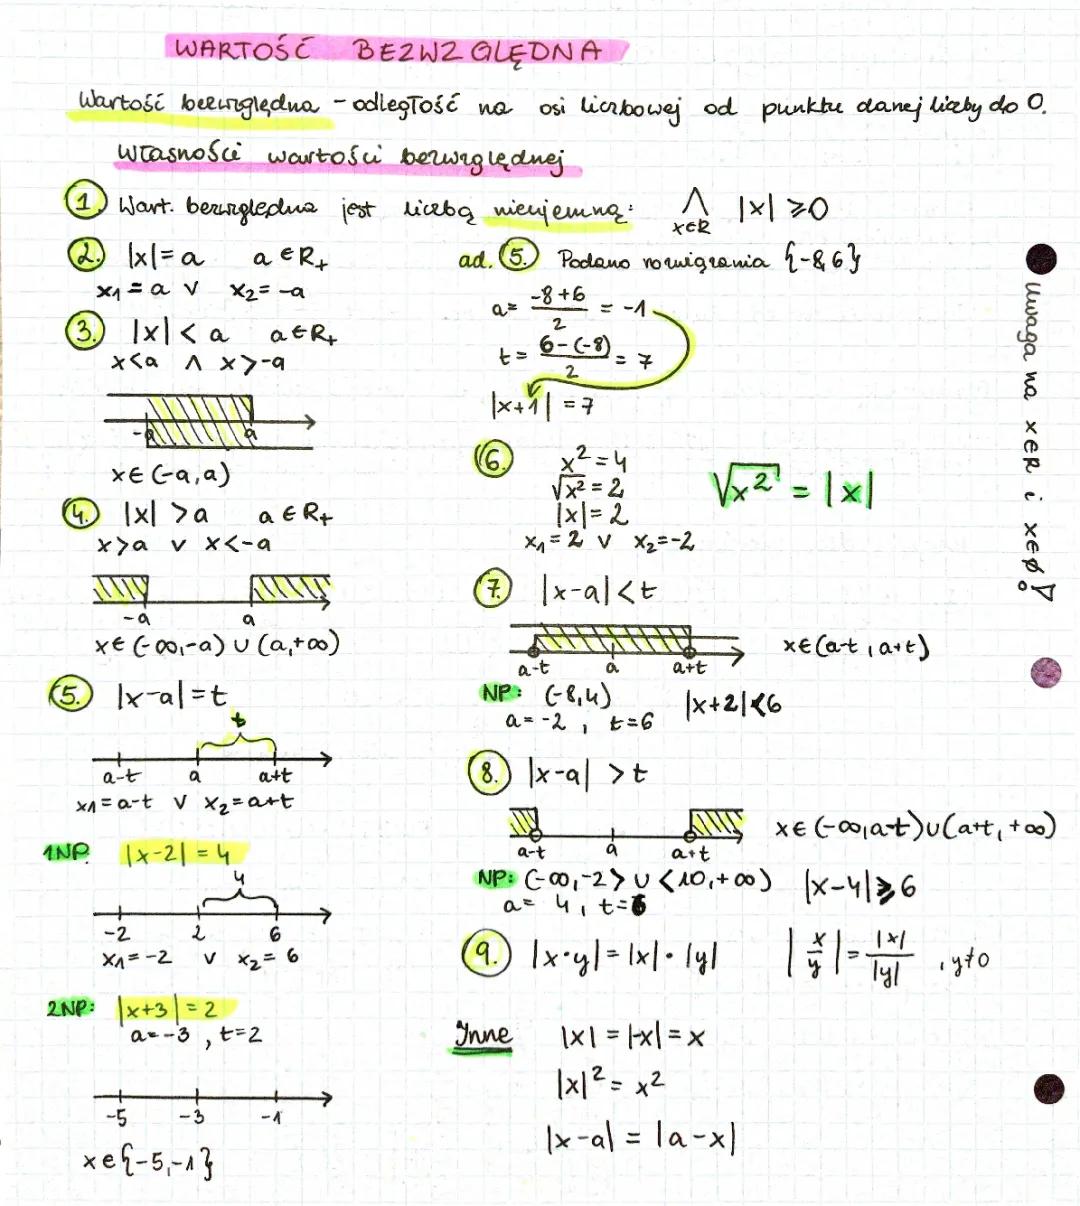 WARTOŚĆ BEZWZGLĘDNA
Wartość bezwzględna - odległość na osi liczbowej od punktu danej liczby do 0.
Własności wartości bezwzględnej
1. Wart. bezwzględna jest liczbą nieujemną: ⋀ x∈R |x| ≥0
2. |x|= a a ∈R+
x1 = a ∨ x2= -a
3. |x| < a a∈R+
x<a ∧ x>-a
-a a
x∈ (-a,a)
4. |x| >a a ∈ R+
x>a ∨ x<-a
-a a
x∈ (-∞,-a) ∪ (a,+∞)
5. |x-a|=t
t
a-t a a+t
x1 = a-t ∨ x2=a+t
1NP. |x-2| = 4
4
-2 2 6
x1= -2 ∨ x2= 6
2NP: |x+3| = 2
a=-3 , t=2
-5 -3 -1
x∈{-5,-1}
ad. 5. Podano rozwiązania {-8,6}
a= (-8+6)/2 = -1
t= (6-(-8))/2 = 7
|x+1| =7
6. x²=4
√x² = 2
|x|= 2
x1 = 2 ∨ x2=-2
√x² = |x|
7. |x-a|<t
a-t a a+t
x∈(a-t, a+t)
NP: (-8,4) |x+2|<6
a= -2 , t=6
8. |x-a| >t
a-t a a+t
x∈ (-∞,a-t)∪(a+t, +∞)
NP: (-∞,-2> ∪ <10,+∞) |x-4|≥6
a= 4, t=6
9. |x·y|= |x|· |y| |x/y| = |x|/|y| , y≠0
Inne |x| = |-x| = x
|x|² = x²
|x-a| = |a-x|
Uwaga na x∈R i x∈∅!